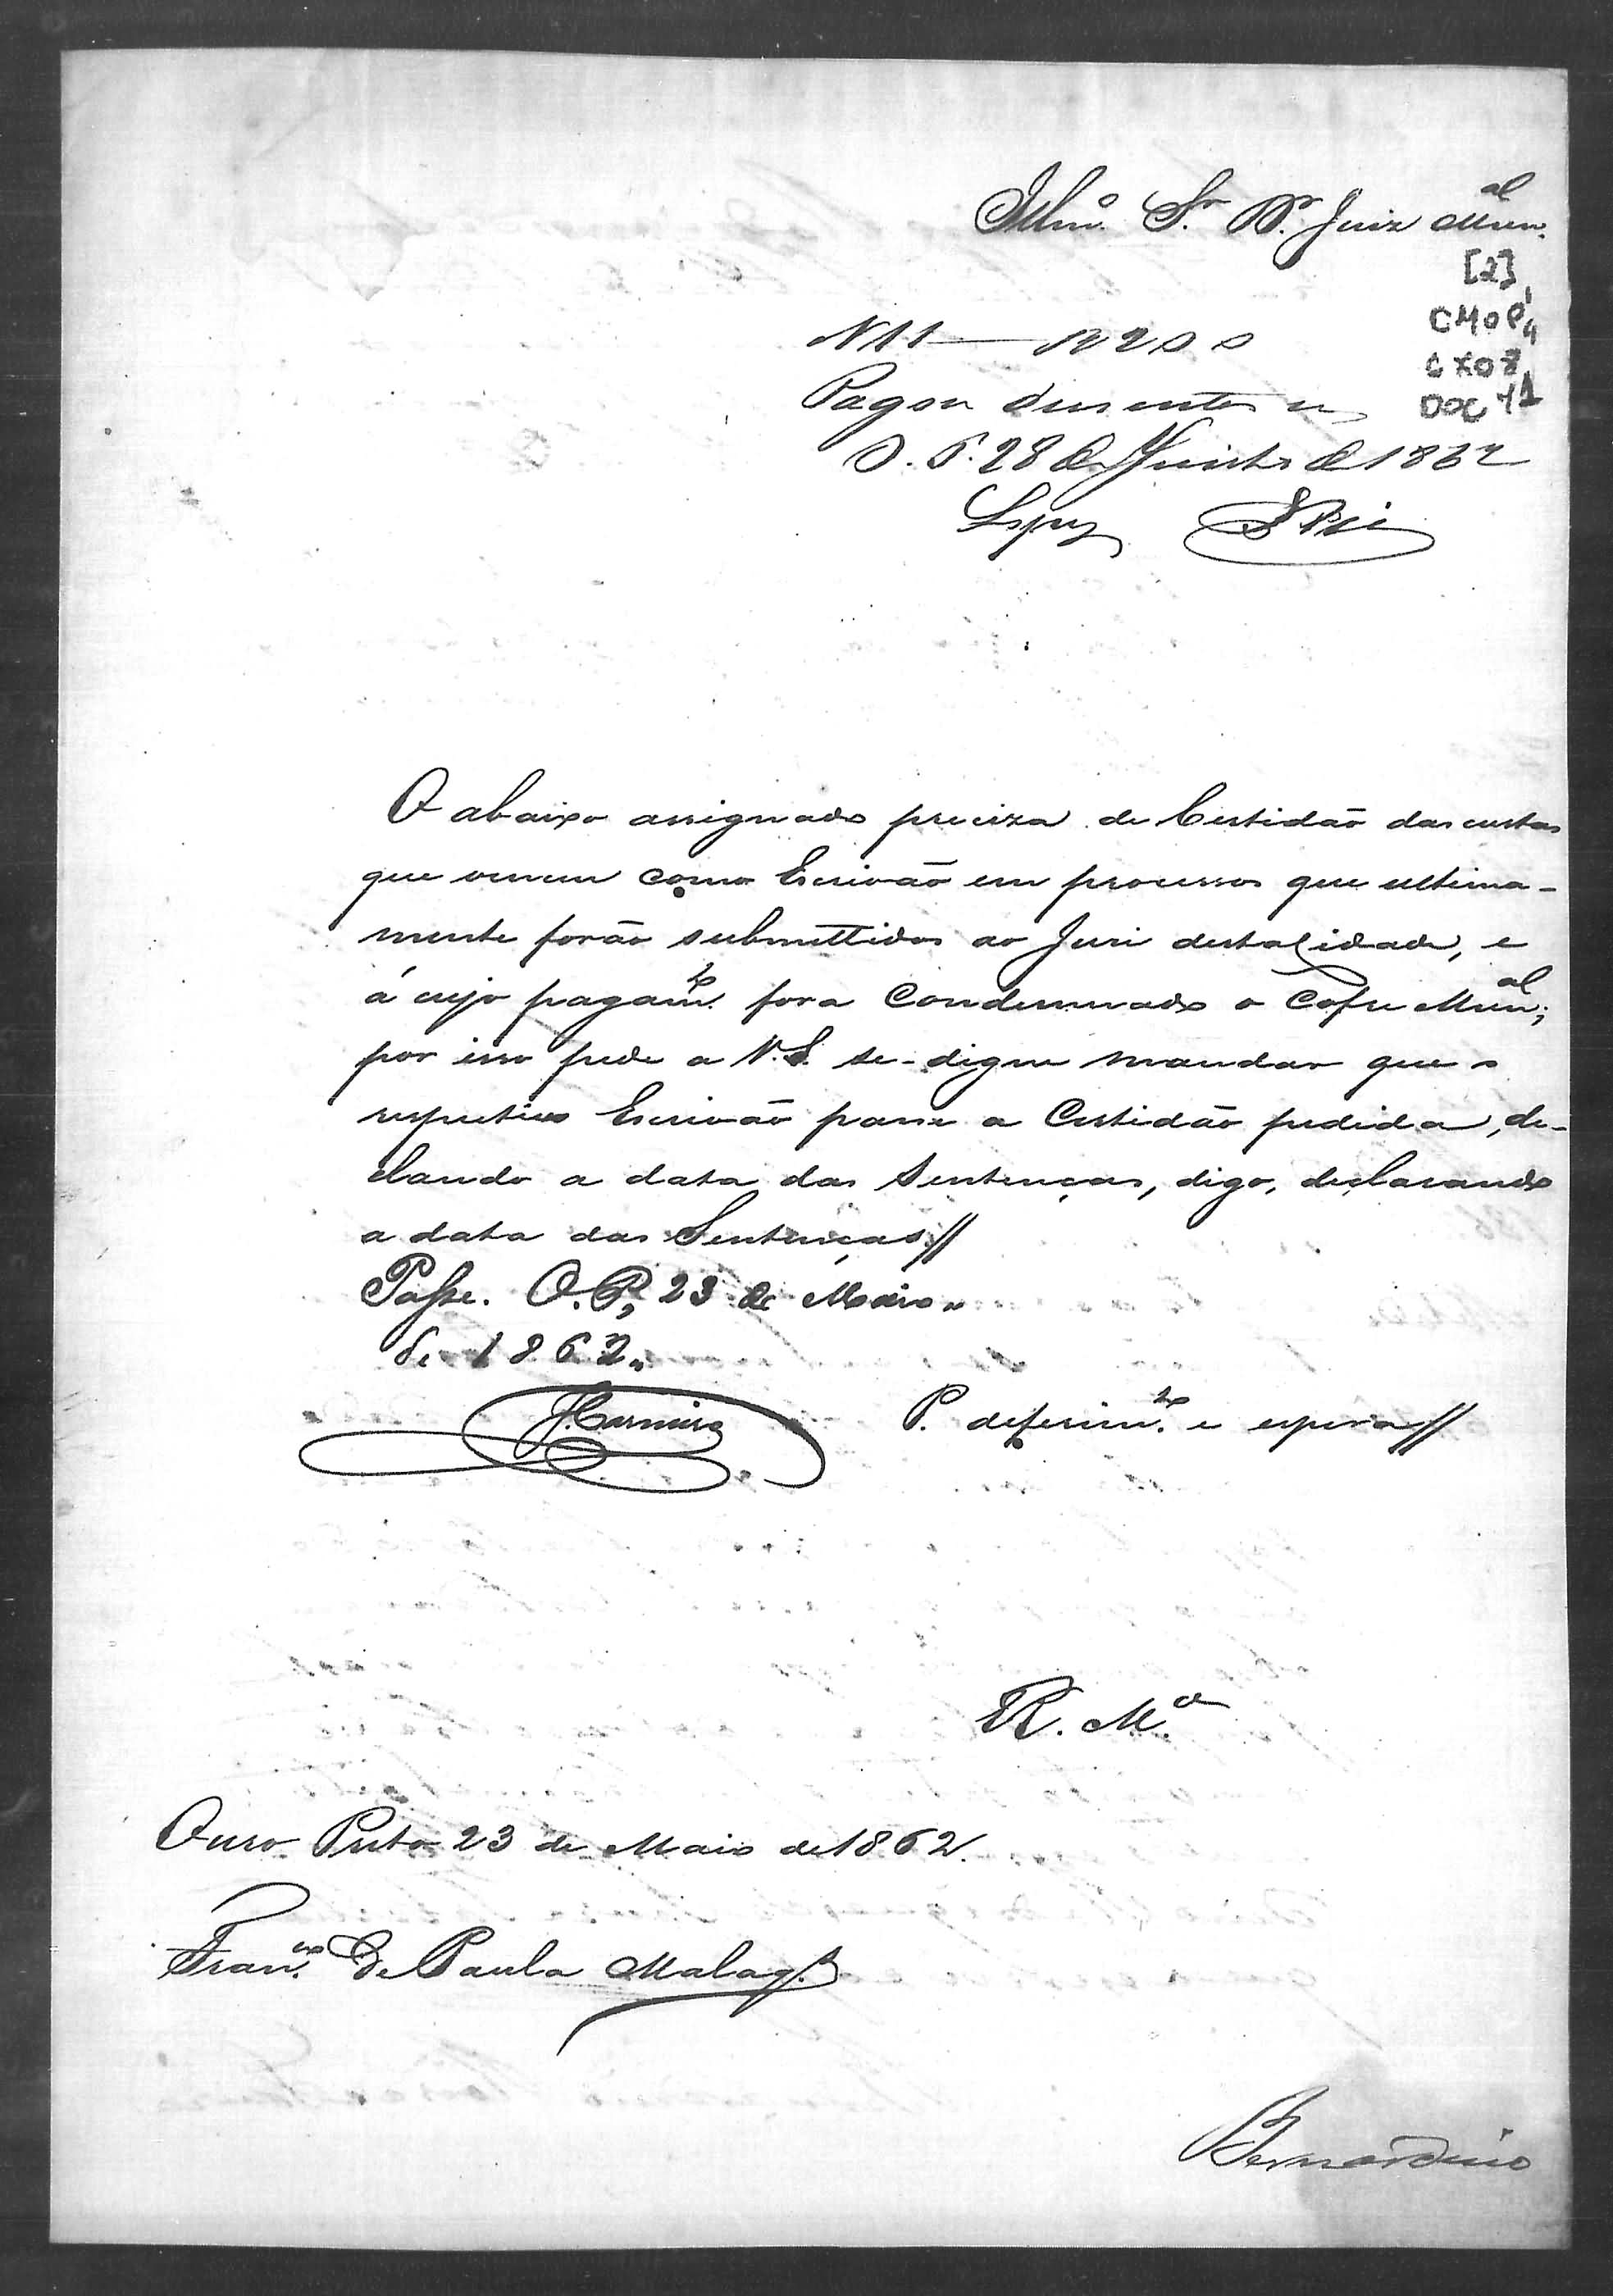 Illmo. Sr. Dr. Juiz Munal.
[2]
CMOP
N 11 — R 200
CX 07
Pagou duzentos rs
DOC 41
O. P. 28 de Junho de 1862
Lopes
O abaixo assignado preciza de Certidão das custas
que venceu como Escrivão em processos que ultima-
mente forão submettidos ao Juri desta Cidade, e
á cujo pagamto. fora Condemnado o Cofre Munal;
por isso pede a V. S. se-digne mandar que o
respectivo Escrivão passe a Certidão pedida, de-
clando a data das Sentenças, digo, declarando
a data das Sentenças //
Passe. O. P., 23 de Maio
de 1862
J. Carneiro
P. deferimto. e espera //
R. Mce.
Ouro Preto 23 de Maio de 1862.
Franco. de Paula Malags.
Bernardino